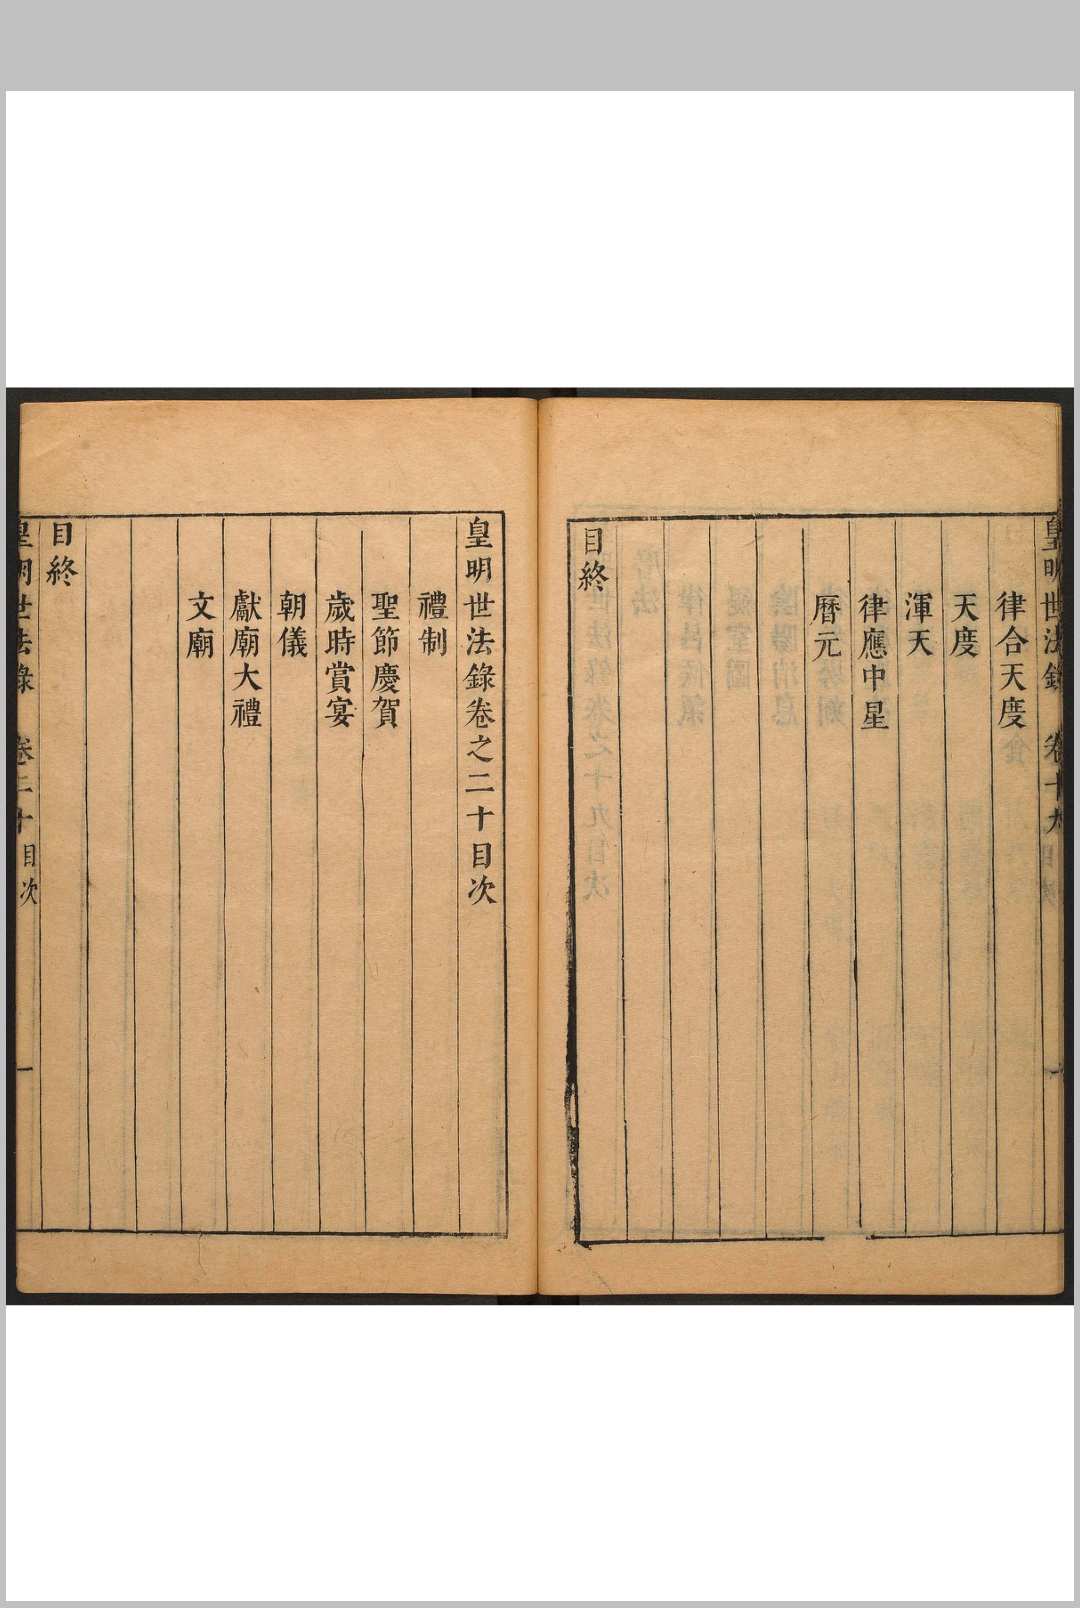 皇明世法錄 卷十九目次
律合天度
天度
渾天
律應中星
曆元
目終
皇明世法錄卷之二十目次
禮制
聖節慶賀
歲時賞宴
朝儀
獻廟大禮
文廟
目終
皇明世法錄 卷二十目次 一